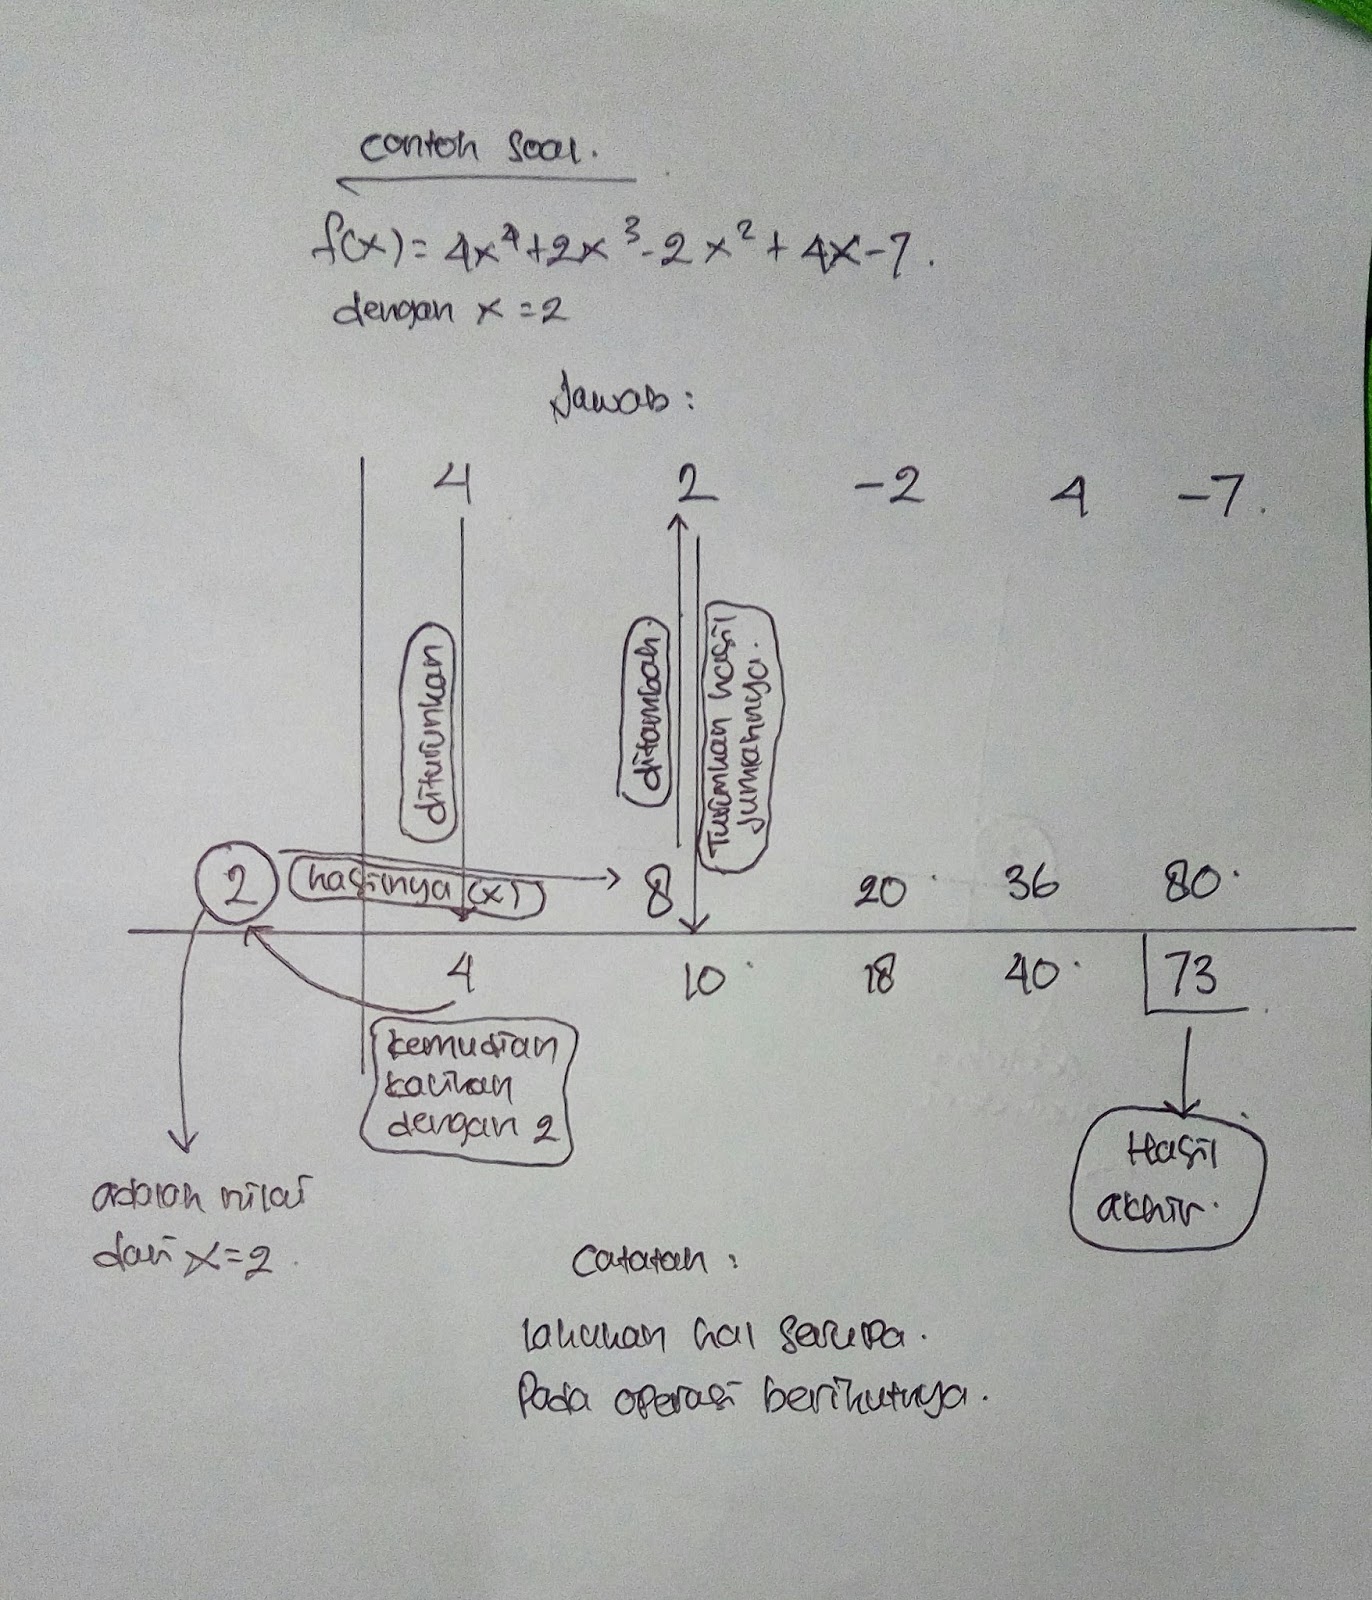 contoh soal.
f(x) = 4x⁴+2x³-2x²+4x-7.
dengan x = 2
Jawab :
4 2 -2 4 -7.
diturunkan
ditambah.
Turunkan hasil
jumlahnya.
2 hasilnya (x) 8 20 36 80
4 10 18 40 73
kemudian
kalikan
dengan 2
adalah nilai
dari x=2.
Hasil
akhir.
Catatan :
lakukan hal serupa.
Pada operasi berikutnya.